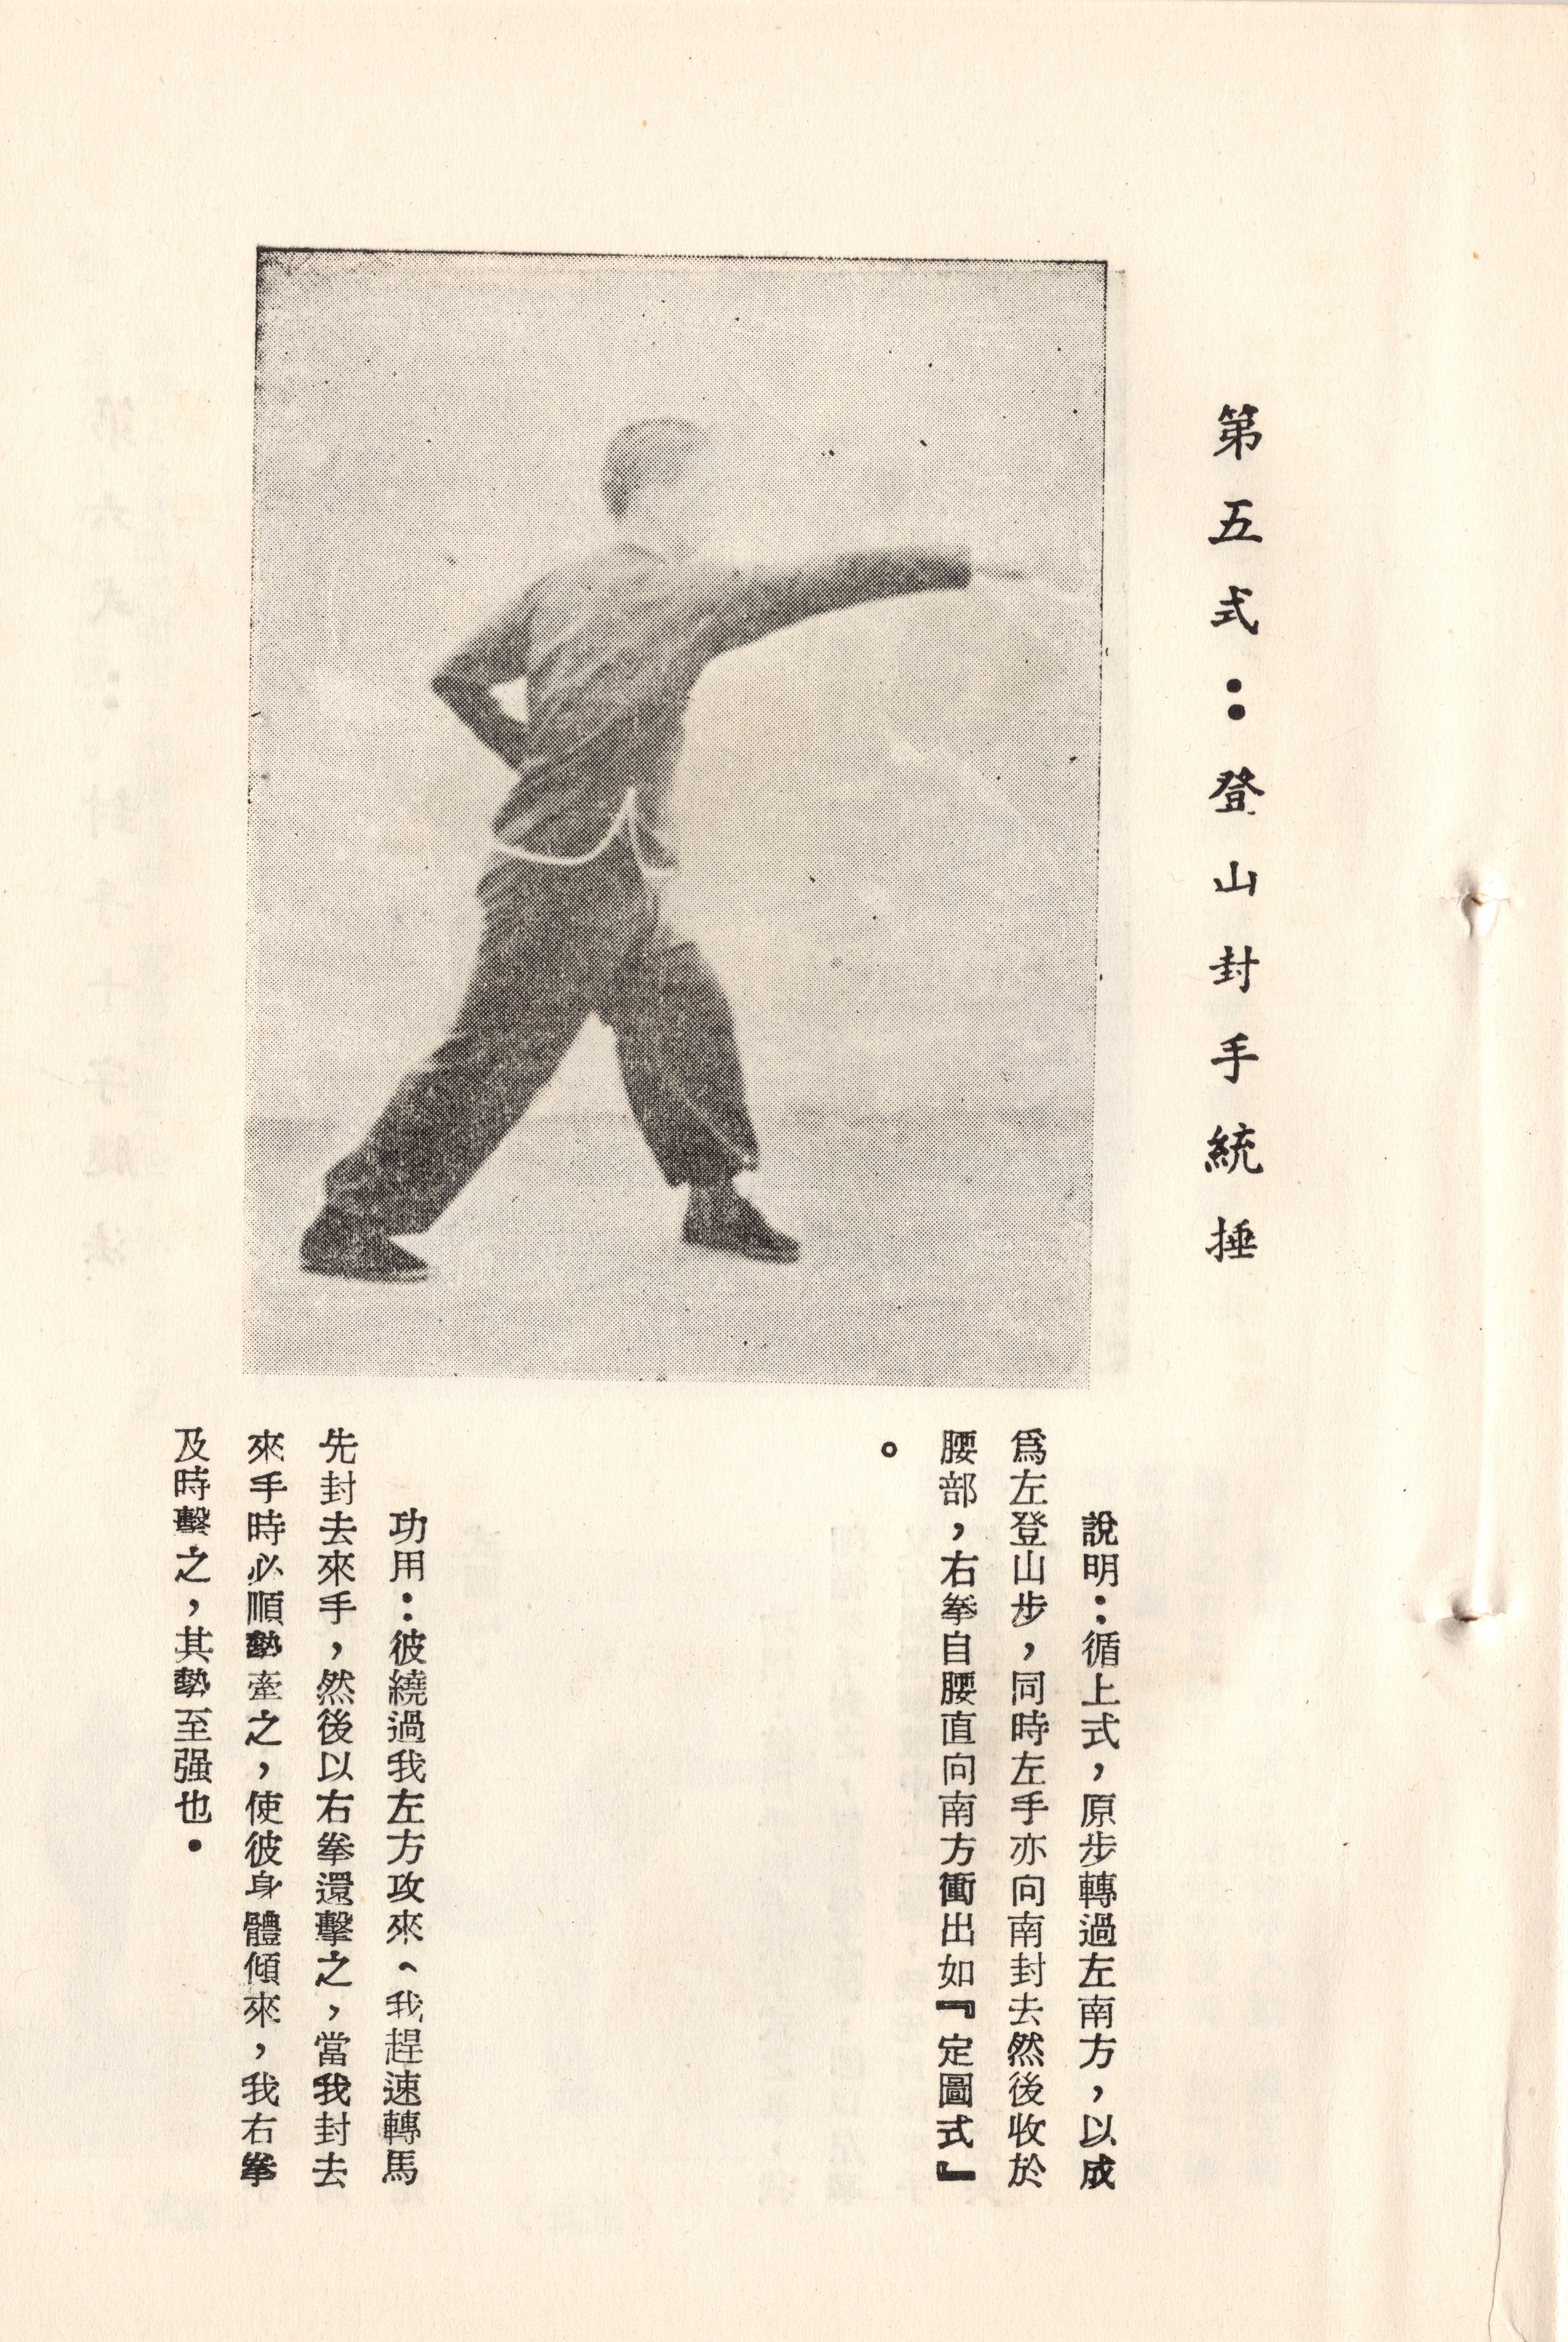 第五式：登山封手統捶
說明：循上式，原步轉過左南方，以成
爲左登山步，同時左手亦向南封去然後收於
腰部，右拳自腰直向南方衝出如『定圖式』
。
功用：彼繞過我左方攻來、我趕速轉馬
先封去來手，然後以右拳還擊之，當我封去
來手時必順勢牽之，使彼身體傾來，我右拳
及時擊之，其勢至强也．